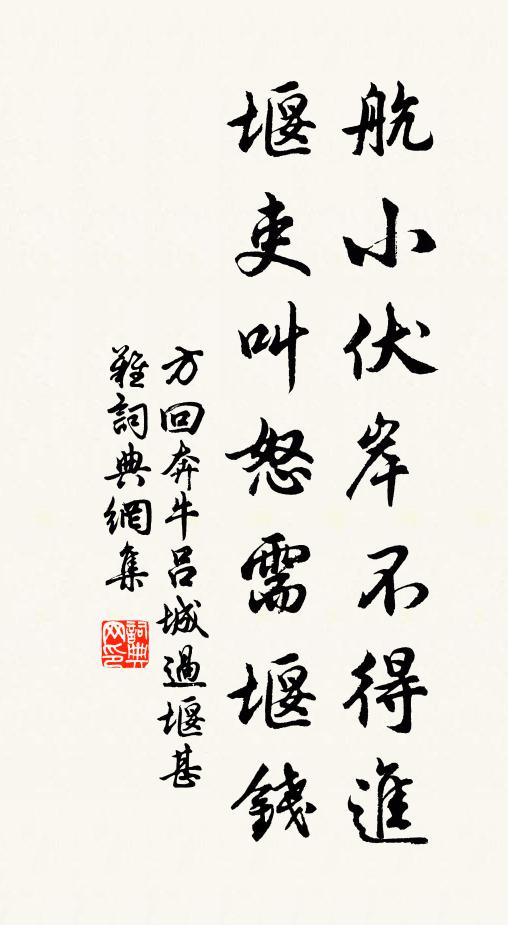 航小伏岸不得進
堰吏叫怒需堰錢
方回奔牛呂城過堰甚
難詞典網集
詞典
网印